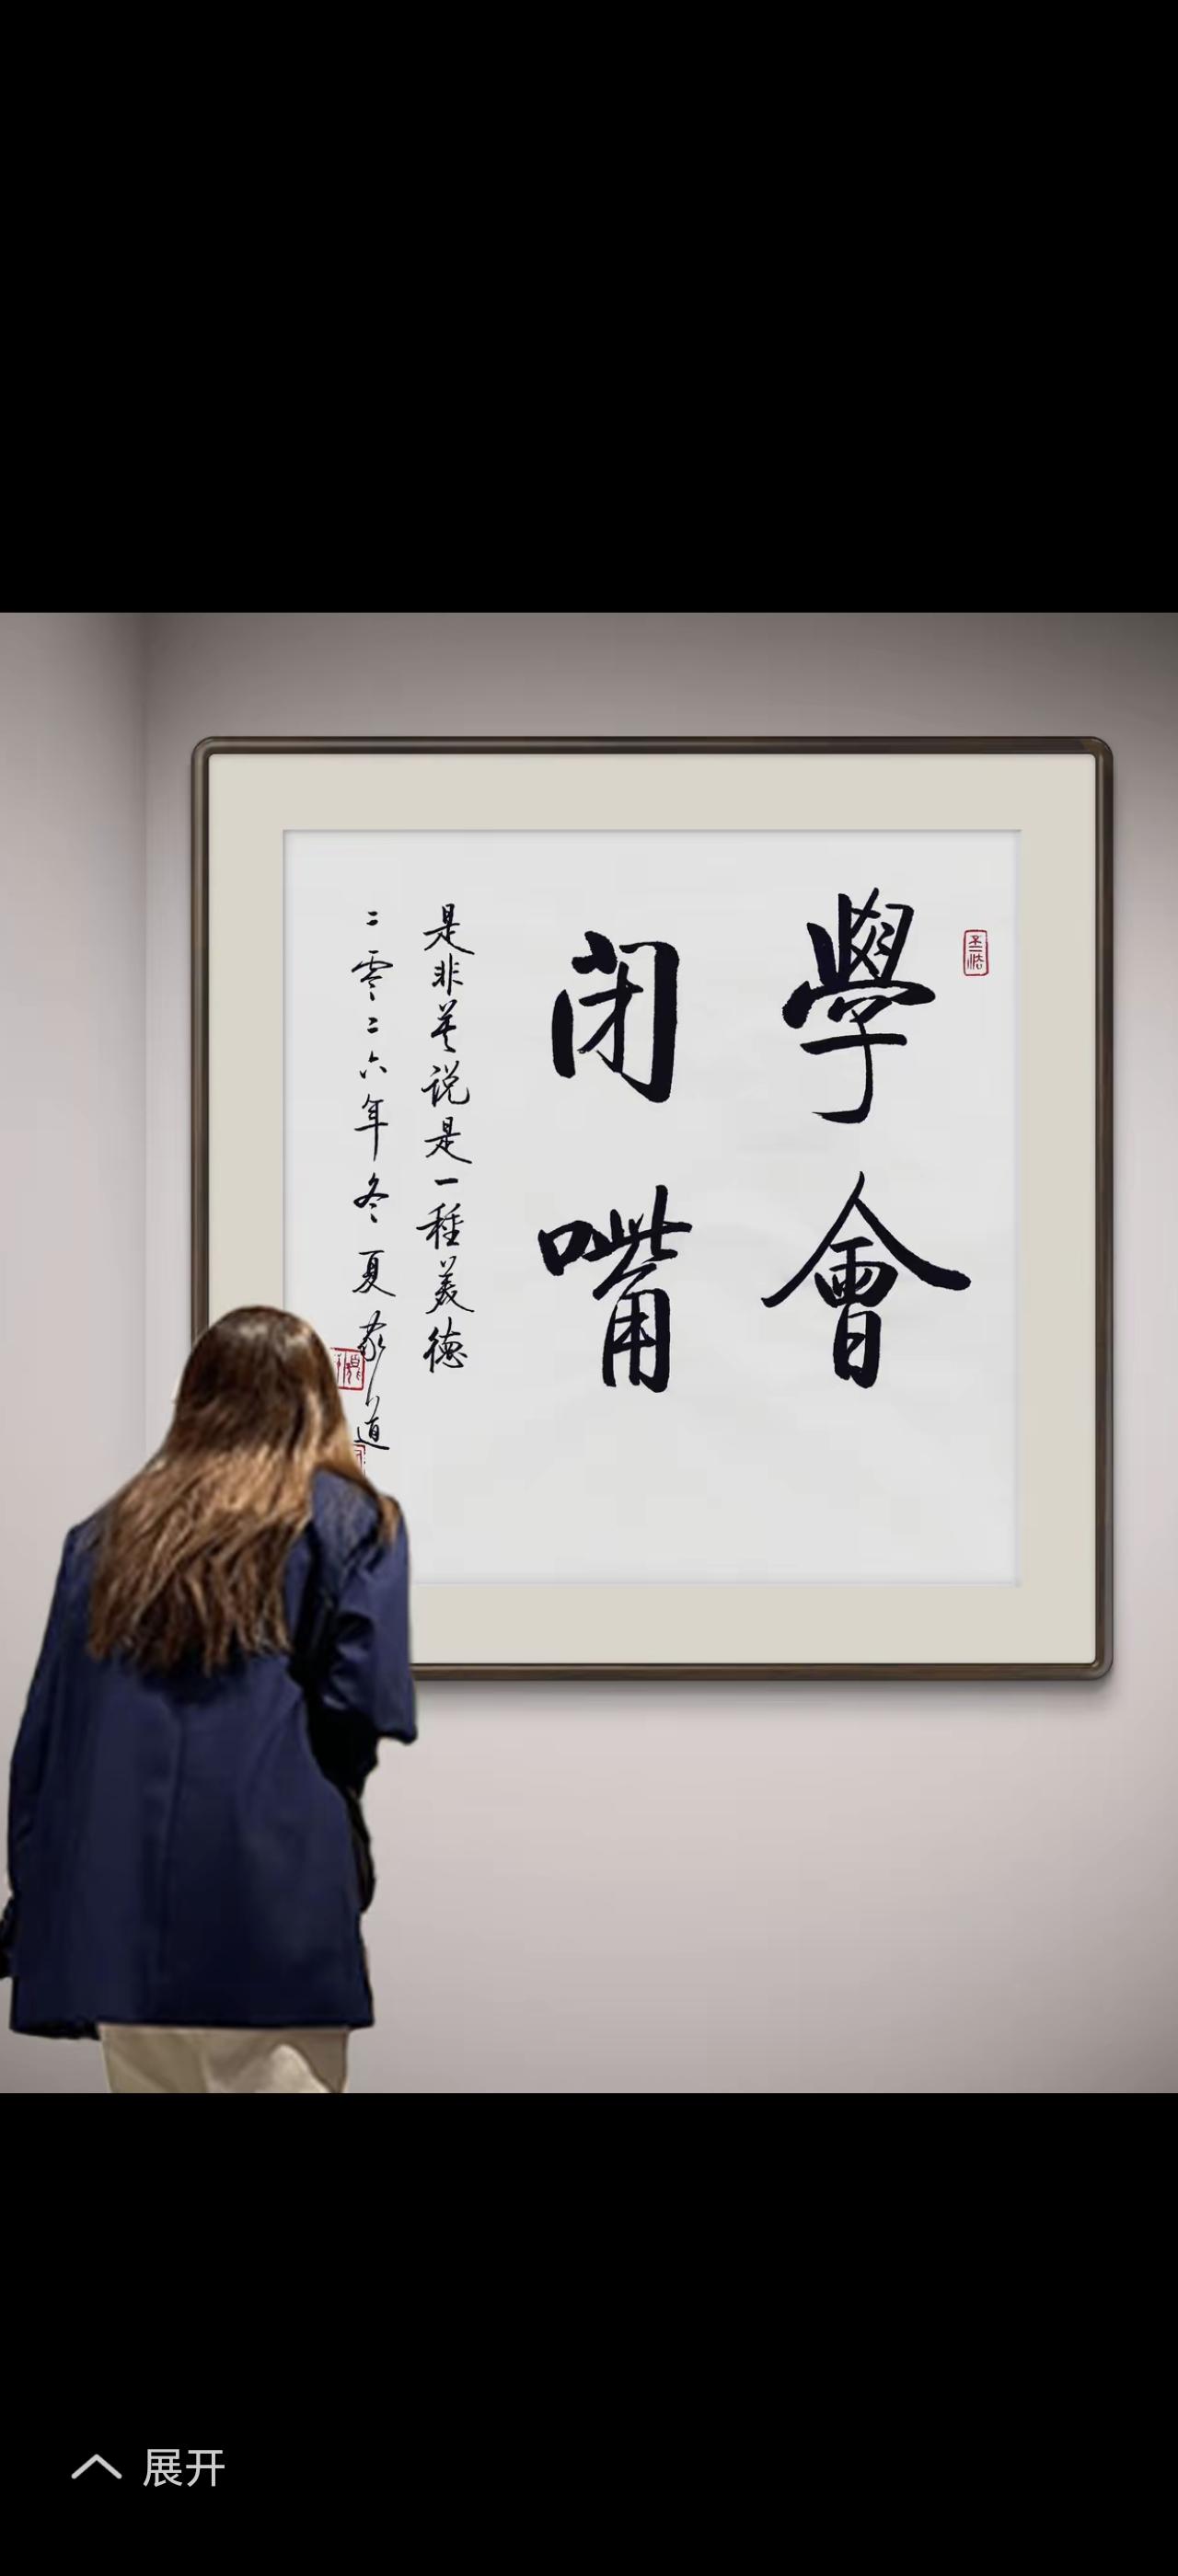 學會
閉嘴
是非莫说是一種美德
二零二六年冬夏
道
展开